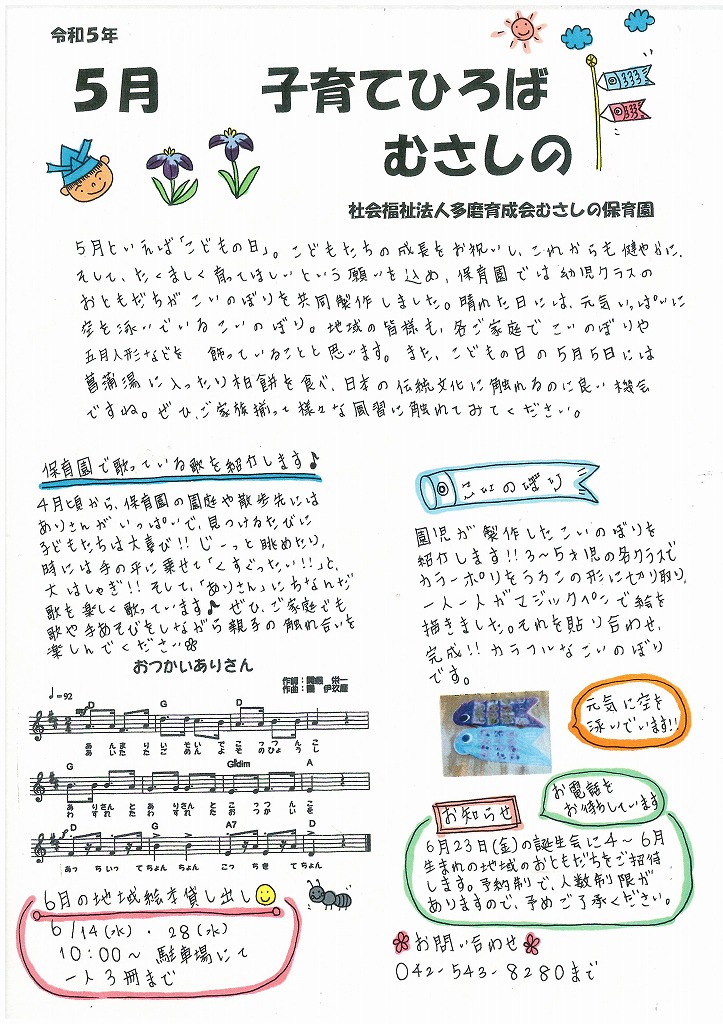 令和5年
5月 子育てひろば
むさしの
社会福祉法人多磨育成会むさしの保育園
5月といえば「こどもの日」。こどもたちの成長をお祝いし、これからも健やかに、
そして、たくましく育ってほしいという願いを込め、保育園では幼児クラスの
おともだちがこいのぼりを共同製作しました。晴れた日には、元気いっぱいに
空を泳いでいるこいのぼり。地域の皆様も、各ご家庭でこいのぼりや
五月人形などを 飾っていることと思います。また、こどもの日の5月5日には
菖蒲湯に入ったり柏餅を食べ、日本の伝統文化に触れるのに良い機会
ですね。ぜひ、ご家族揃って様々な風習に触れてみてください。
保育園で歌っている歌を紹介します♪
4月頃から、保育園の園庭や散歩先には
ありさんがいっぱいで、見つけるたびに
子どもたちは大喜び!!じーっと眺めたり、
時には手の平に乗せて「くすぐったい!!」と、
大はしゃぎ!!そして、「ありさん」にちなんだ
歌を楽しく歌っています♪ぜひ、ご家庭でも
歌や手あそびをしながら親子の触れ合いを
楽しんでください
おつかいありさん
作詞:関根 栄一
作曲:團 伊玖磨
♩=92
D G D
あんまりいそいでこっつんこ
あいたたごめんよそのひょうし
G G#dim A
ありさんとありさんとこっつんこ
わすれたわすれたおつかいを
D G A7 D
あっちいってちょんちょんこっちきてちょん
6月の地域絵本貸し出し
6/14(水)・28(水)
10:00〜 駐車場にて
一人3冊まで
こいのぼり
園児が製作したこいのぼりを
紹介します!!3〜5才児の各クラスで
カラーポリをうろこの形に切り取り、
一人一人がマジックペンで絵を
描きました。それを貼り合わせ、
完成!!カラフルなこいのぼり
です。
元気に空を
泳いでいます!!
お知らせ
お電話を
お待ちしています
6月23日(金)の誕生会に4〜6月
生まれの地域のおともだちをご招待
します。予約制で、人数制限が
ありますので、予めご了承ください。
お問い合わせ
042-543-8280まで